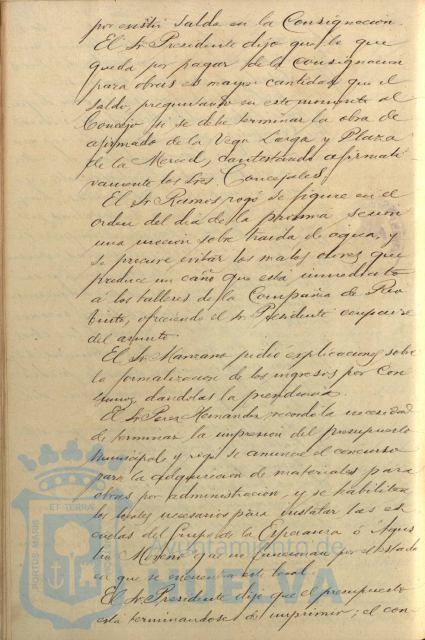 por existir saldo en la Consignacion.
El Sr. Presidente dijo que lo que
queda por pagar de la consignacion
para obras es mayor cantidad que el
saldo, preguntando en este momento al
Concejo si se debe terminar la obra de
afirmado de la Vega Larga y Plaza
de la Merced, contestando afirmati-
vamente los Sres. Concejales.
El Sr. Ramos rogó se figure en el
orden del dia de la proxima sesion
una mocion sobre traida de aguas, y
se procure evitar los malos olores que
produce un caño que está inmediato
á los talleres de la Compañia de Rio
tinto, ofreciendo el Sr. Presidente ocuparse
del asunto.
El Sr. Manzano pidió explicaciones sobre
la formalizacion de los ingresos por Con
sumos, dandolas la presidencia.
El Sr. Perez Hernandez, recordó la necesidad
de terminar la impresion del presupuesto
municipal y rogó se anuncie el concurso
para la adquisicion de materiales para
obras por administracion, y se habiliten
los locales necesarios para instalar las es
cuelas del Grupo de la Esperanza ó Agus
tin Moreno y no funcionar por el estado
en que se encuentra este local.
El Sr. Presidente dijo que el presupuesto
está terminandose de imprimir; el con-
PORTUS MARIS
ET TERRÆ
Ayuntamiento de
HUELVA